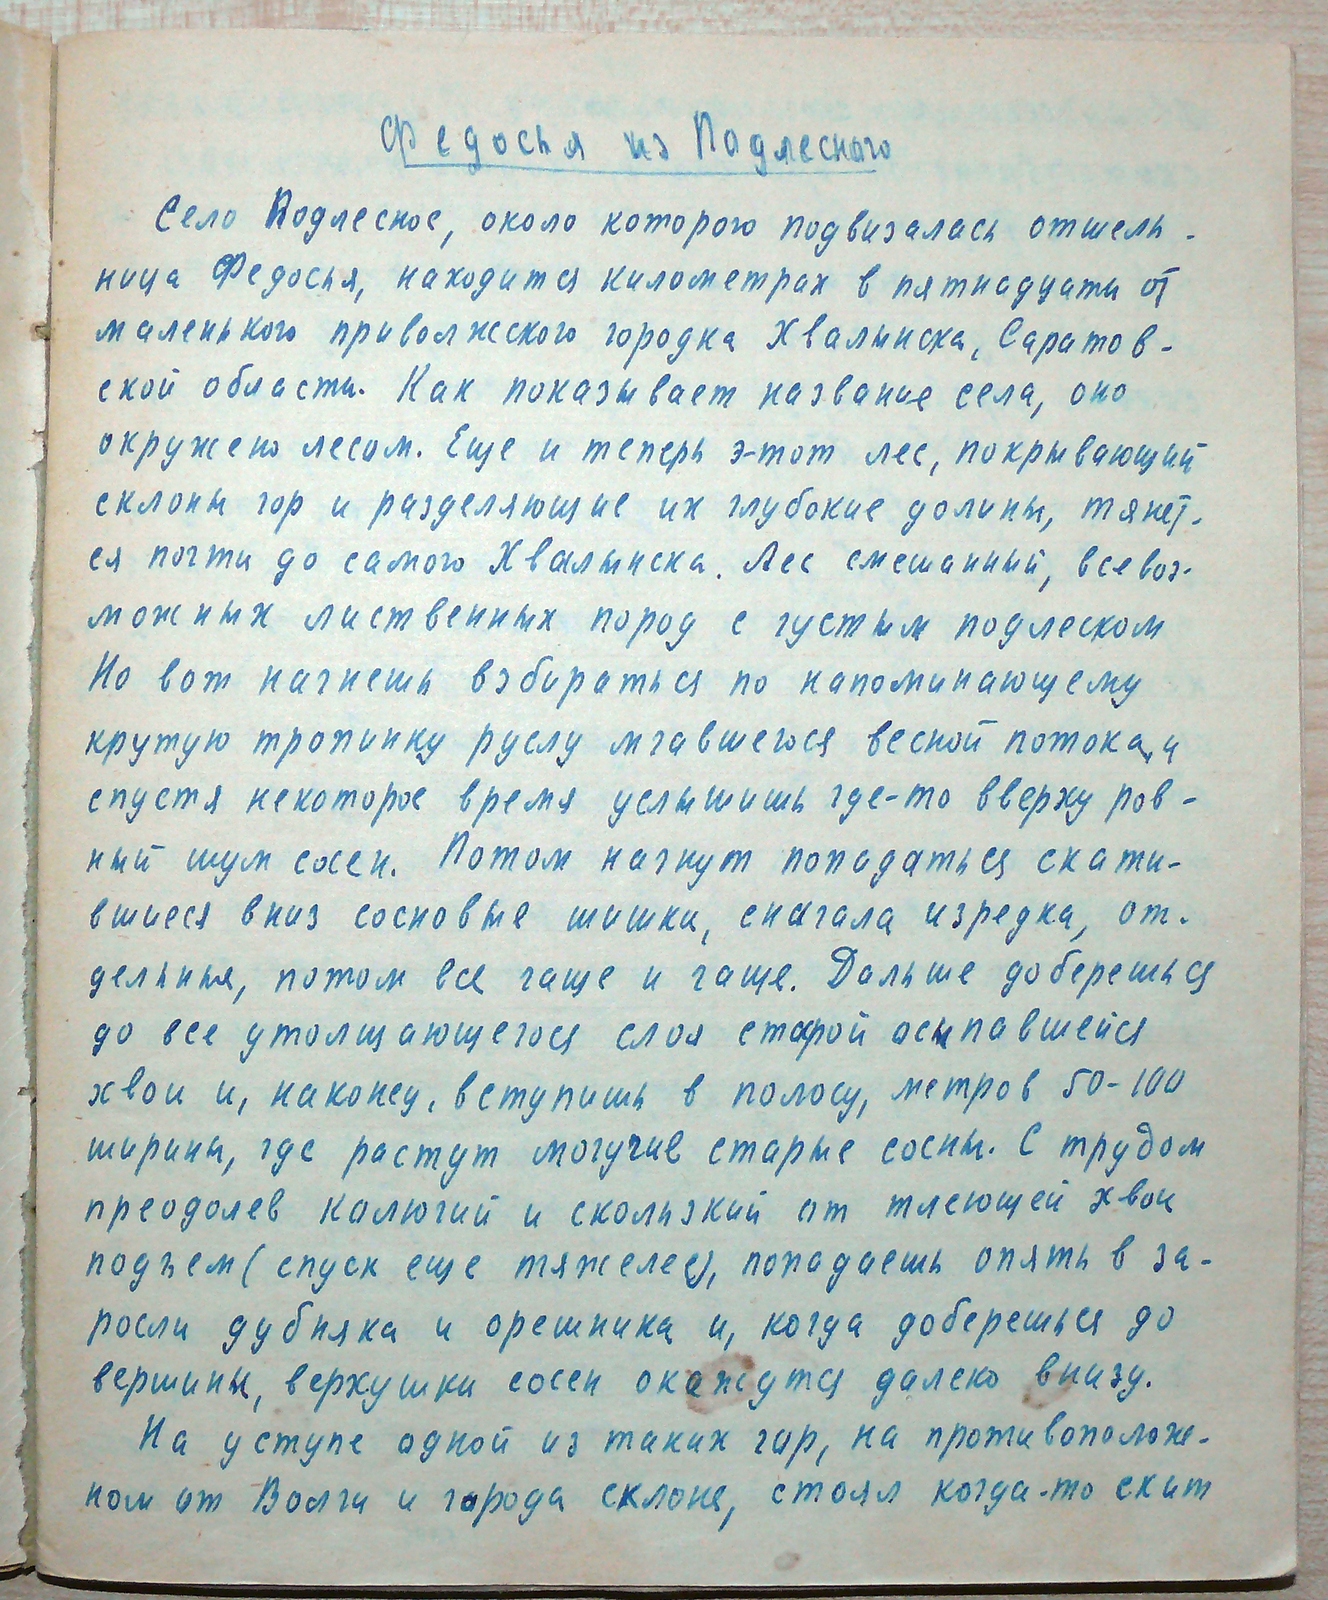 Федосья из Подлесного
Село Подлесное, около которого подвизалась отшель-
ница Федосья, находится километрах в пятнадцати от
маленького приволжского городка Хвалынска, Саратов-
ской области. Как показывает название села, оно
окружено лесом. Еще и теперь э-тот лес, покрывающий
склоны гор и разделяющие их глубокие долины, тянет-
ся почти до самого Хвалынска. Лес смешанный, всевоз-
можных лиственных пород с густым подлеском
Но вот начнешь взбираться по напоминающему
крутую тропинку руслу мчавшегося весной потока, и
спустя некоторое время услышишь где-то вверху ров-
ный шум сосен. Потом начнут попадаться скати-
вшиеся вниз сосновые шишки, сначала изредка, от-
дельные, потом все чаще и чаще. Дальше доберешься
до все утолщающегося слоя старой осыпавшейся
хвои и, наконец, вступишь в полосу, метров 50-100
ширины, где растут могучие старые сосны. С трудом
преодолев колючий и скользкий от тлеющей хвои
подъем (спуск еще тяжелее), попадаешь опять в за-
росли дубняка и орешника и, когда доберешься до
вершины, верхушки сосен окажутся далеко внизу.
На уступе одной из таких гор, на противополож-
ном от Волги и города склоне, стоял когда-то скит